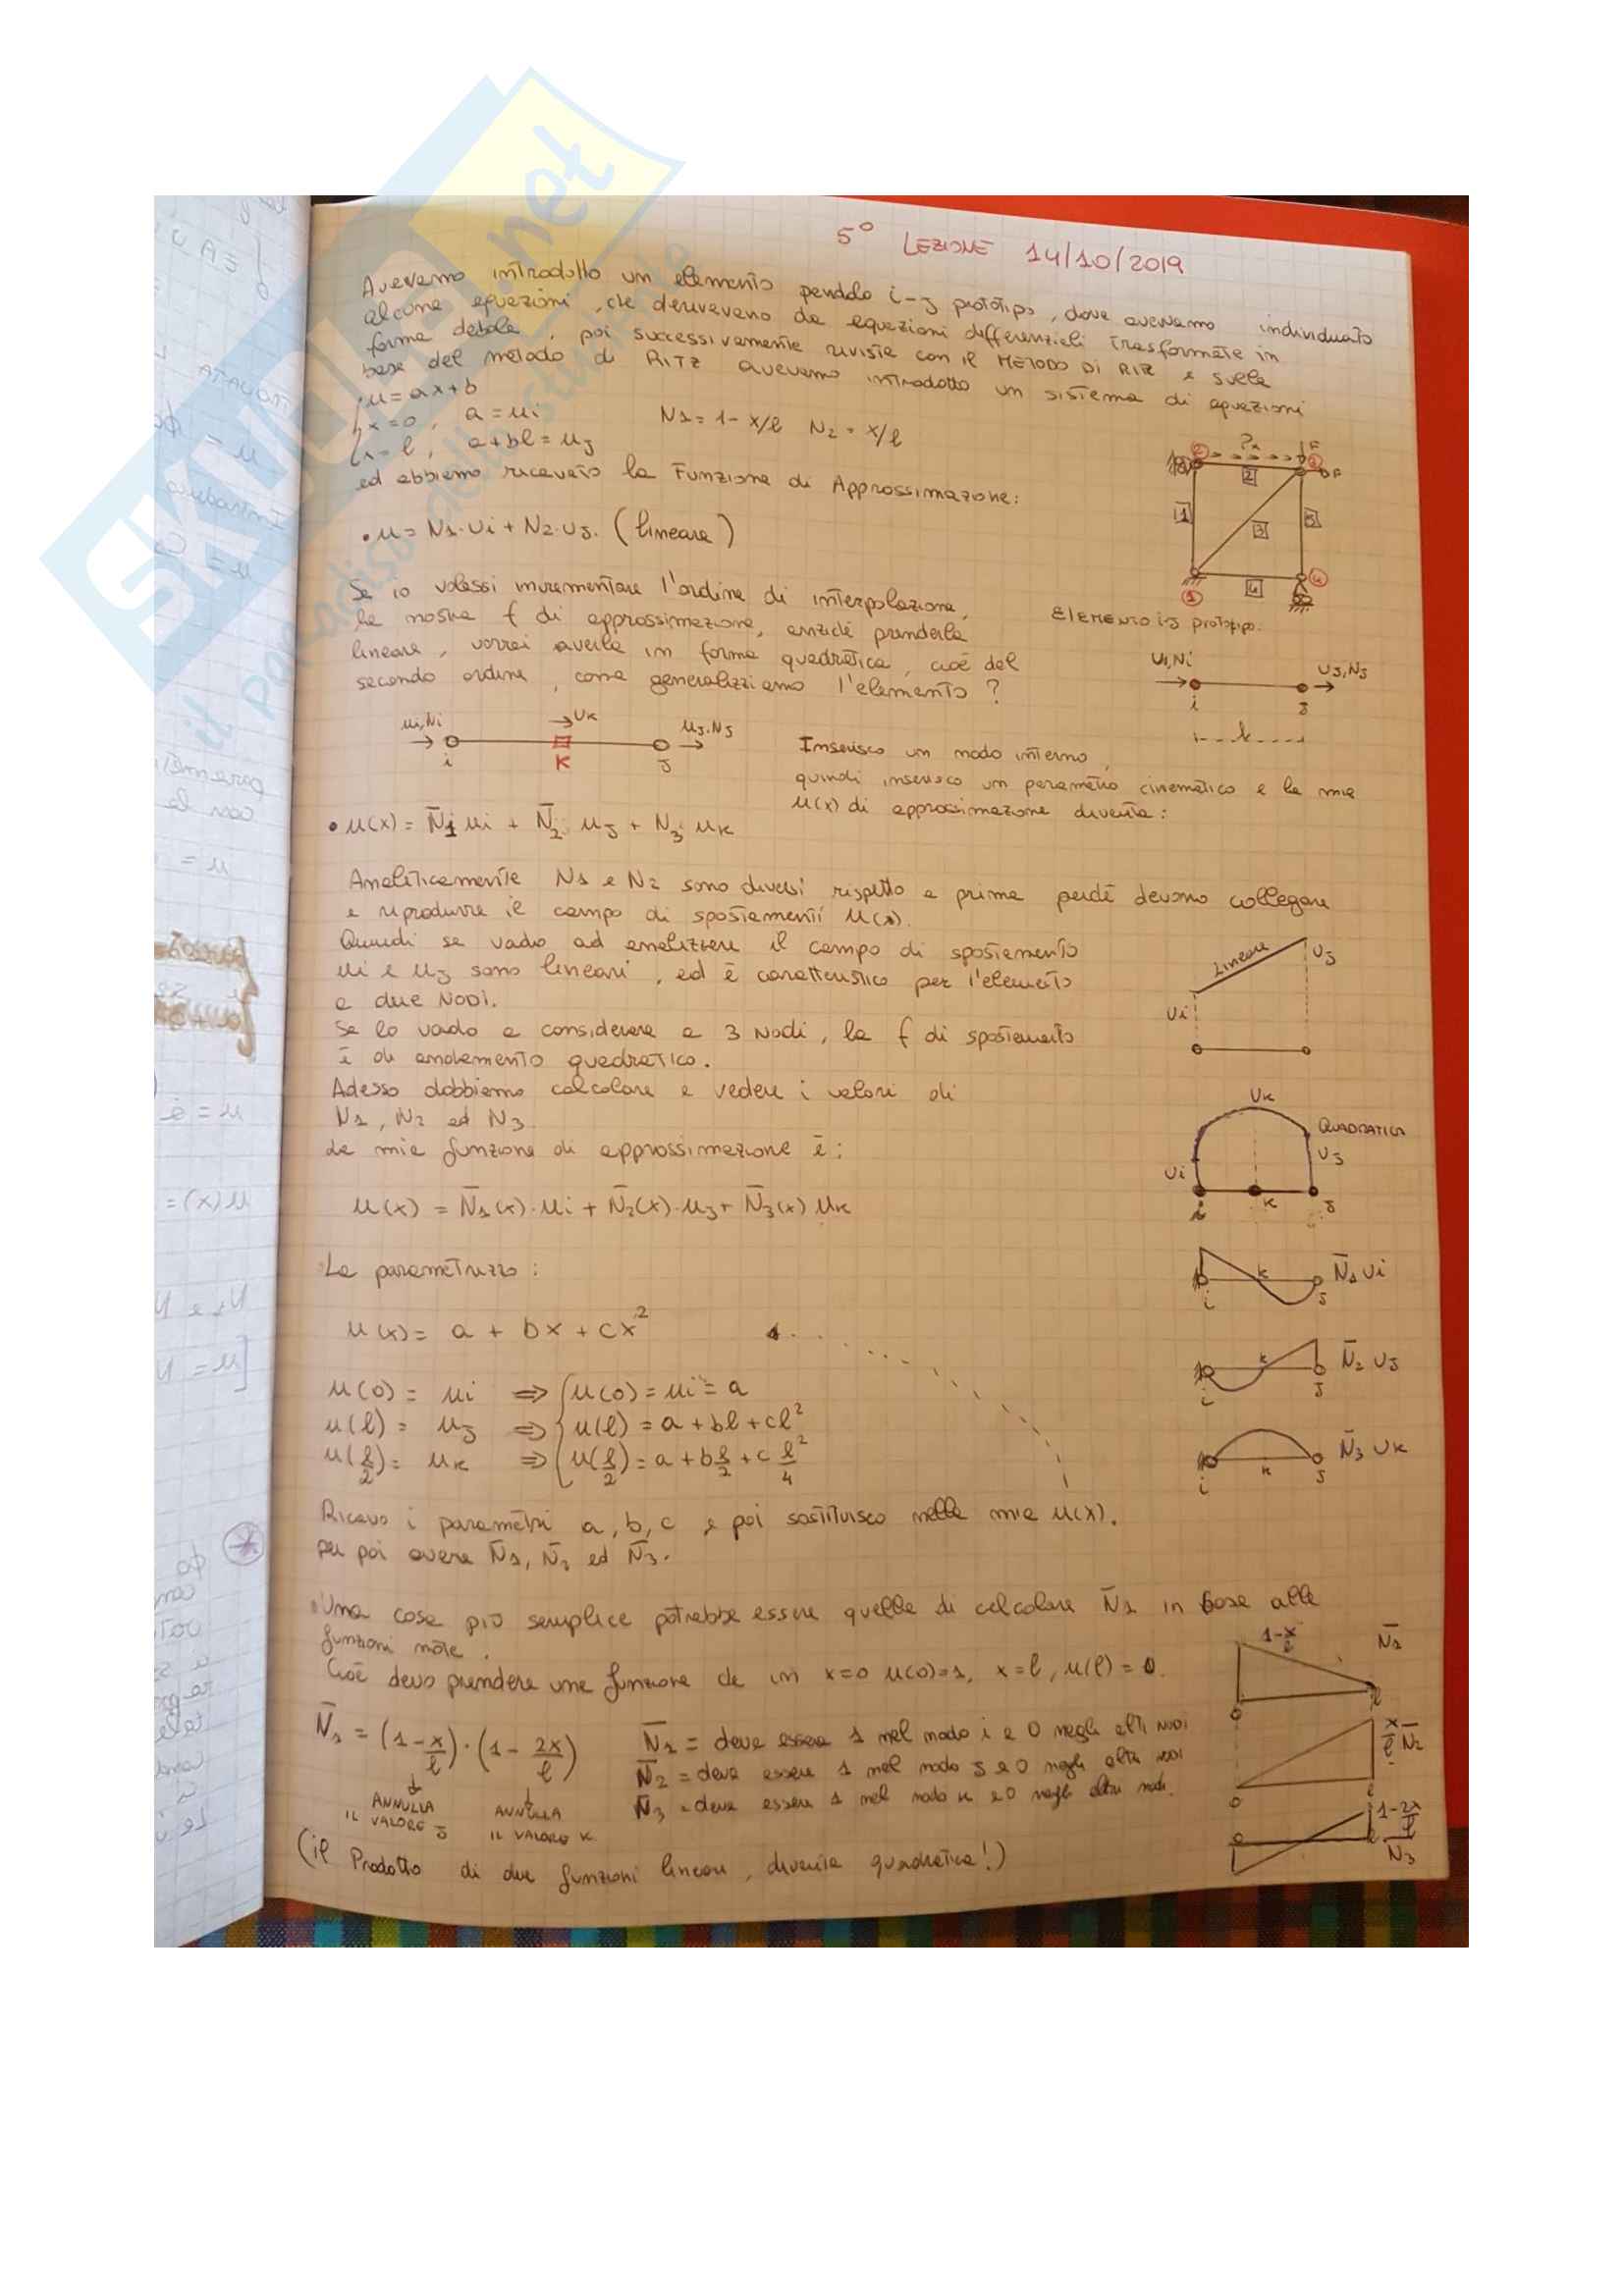 SKUOLA.net
il paradiso dello studente
5° LEZIONE 14/10/2019
Avevamo introdotto un elemento pendolo i-J prototipo, dove avevamo individuato
alcune equazioni, che derivavano da equazioni differenziali trasformate in
forma debole, poi successivamente riviste con il METODO DI RIZ e sulla
base del metodo di RITZ avevamo introdotto un sistema di equazioni
• u = ax + b
x = 0 , a = ui
x = l , a + bl = uJ
N1 = 1 - x/l N2 = x/l
ed abbiamo ricavato la Funzione di Approssimazione:
• u = N1·Ui + N2·UJ. (lineare)
1
2
3
4
5
Px
F
F
Elemento i-J prototipo.
Se io volessi incrementare l'ordine di interpolazione,
la nostra f di approssimazione, anziché prenderla
lineare, vorrei averla in forma quadratica, cioè del
secondo ordine, come generalizziamo l'elemento?
Ui, Ni
UJ, NJ
i
J
l
ui, Ni
UK
uJ, NJ
i
K
J
Inserisco un nodo interno,
quindi inserisco un parametro cinematico e la mia
u(x) di approssimazione diventa:
• u(x) = N̄1 ui + N̄2 uJ + N̄3 uK
Analiticamente N1 e N2 sono diversi rispetto a prima perché devono collegare
e riprodurre il campo di spostamenti u(x).
Quindi se vado ad analizzare il campo di spostamento
ui e uJ sono lineari, ed è caratteristico per l'elemento
a due NODI.
Se lo vado a considerare a 3 Nodi, la f di spostamento
è di andamento quadratico.
Adesso dobbiamo calcolare e vedere i valori di
N1, N2 ed N3.
La mia funzione di approssimazione è:
u(x) = N̄1(x)·ui + N̄2(x)·uJ + N̄3(x) uK
Lineare
UJ
Ui
UK
QUADRATICA
UJ
Ui
i
K
J
La parametrizzo:
u(x) = a + bx + cx²
u(0) = ui ⇒ { u(0) = ui = a
u(l) = uJ ⇒ { u(l) = a + bl + cl²
u(l/2) = uK ⇒ { u(l/2) = a + b l/2 + c l²/4
N̄1 Ui
i
K
J
N̄2 UJ
i
K
J
N̄3 UK
i
K
J
Ricavo i parametri a, b, c e poi sostituisco nella mia u(x).
per poi avere N̄1, N̄2 ed N̄3.
Una cosa più semplice potrebbe essere quella di calcolare N̄1 in base alle
funzioni note.
Cioè devo prendere una funzione che in x=0 u(0)=1, x=l, u(l)=0.
N̄1 = (1 - x/l) · (1 - 2x/l)
ANNULLA
IL VALORE J
ANNULLA
IL VALORE K
N̄1 = deve essere 1 nel nodo i e 0 negli altri nodi
N̄2 = deve essere 1 nel nodo J e 0 negli altri nodi
N̄3 = deve essere 1 nel nodo K e 0 negli altri nodi.
(il Prodotto di due funzioni lineari, diventa quadratica!)
1 - x/l
N̄1
0
l
x/l
N̄2
0
l
1 - 2x/l
N̄3